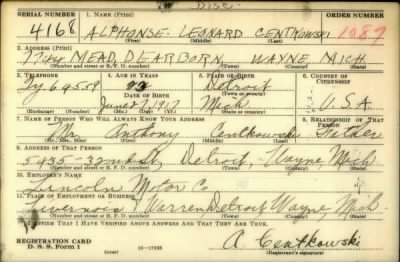 SERIAL NUMBER 1. NAME (Print) ORDER NUMBER
4168 ALPHONSE LEONARD CENTKOWSKI 1089
(First) (Middle) (Last)
2. ADDRESS (Print)
7744 MEAD DEARBORN WAYNE MICH
(Number and street or R. F. D. number) (Town) (County) (State)
3. TELEPHONE 4. AGE IN YEARS 5. PLACE OF BIRTH 6. COUNTRY OF CITIZENSHIP
Ty 64559 Detroit
DATE OF BIRTH (Town or county)
June Mich U.S.A.
(Exchange) (Number) (Mo.) (Day) (Yr.) (State or country)
7. NAME OF PERSON WHO WILL ALWAYS KNOW YOUR ADDRESS 8. RELATIONSHIP OF THAT PERSON
Mr. Anthony Centkowski Father
(Mr., Mrs., Miss) (First) (Middle) (Last)
9. ADDRESS OF THAT PERSON
5435-32nd St, Detroit, Wayne, Mich
(Number and street or R. F. D. number) (Town) (County) (State)
10. EMPLOYER'S NAME
Lincoln Motor Co
11. PLACE OF EMPLOYMENT OR BUSINESS
Livernois & Warren Detroit Wayne, Mich.
(Number and street or R. F. D. number) (Town) (County) (State)
I AFFIRM THAT I HAVE VERIFIED ABOVE ANSWERS AND THAT THEY ARE TRUE.
REGISTRATION CARD A Centkowski
D. S. S. FORM 1 (over) 16-17105 (Registrant's signature)